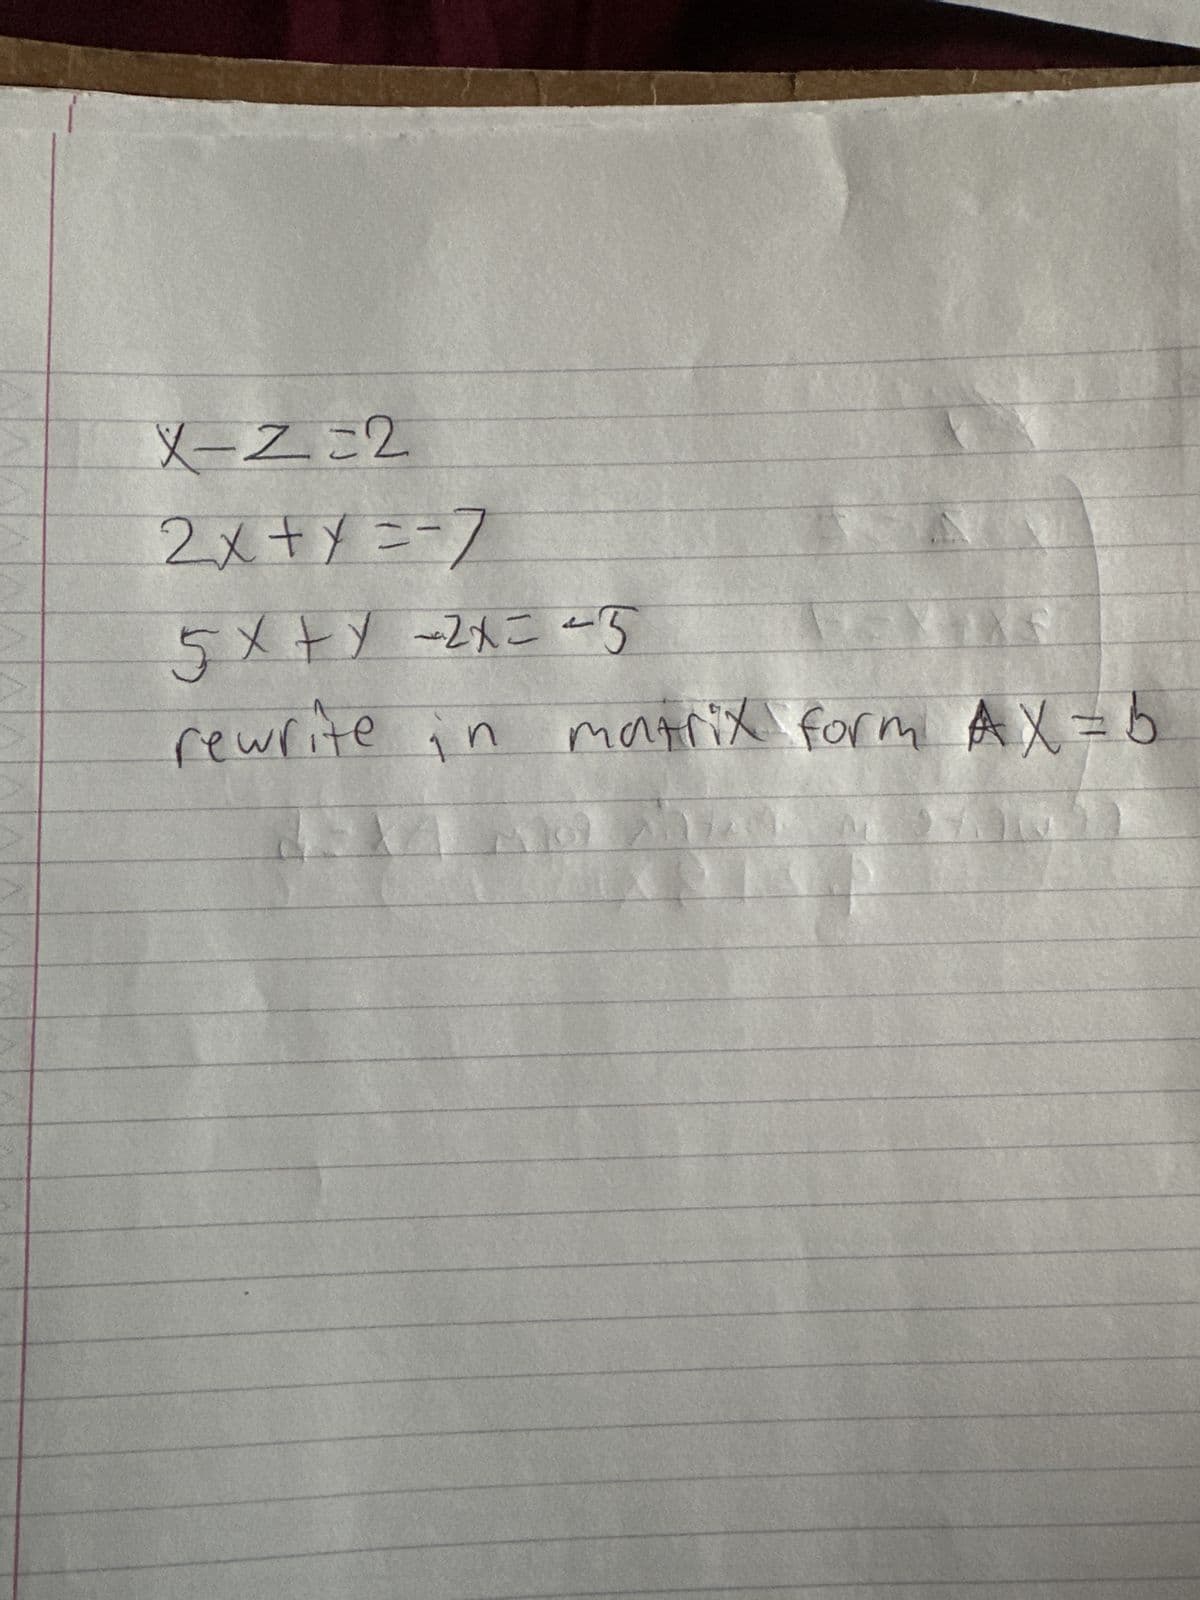 x-z=2
2x+y=-7
5x+y-2x=-5
rewrite in matrix form AX=b